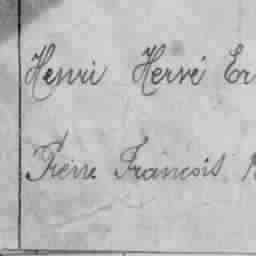 Henri Hervé Er
Pierre François